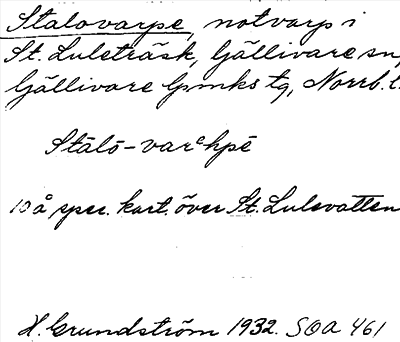 Stalovarpe, notvarp i
St. Luleträsk, Gällivare sn,
Gällivare lpmks tg, Norrb. l.
Stālō-varᵉhpē
10 å spec. kart. över St. Lulevatten
H. Grundström 1932. SOA 461